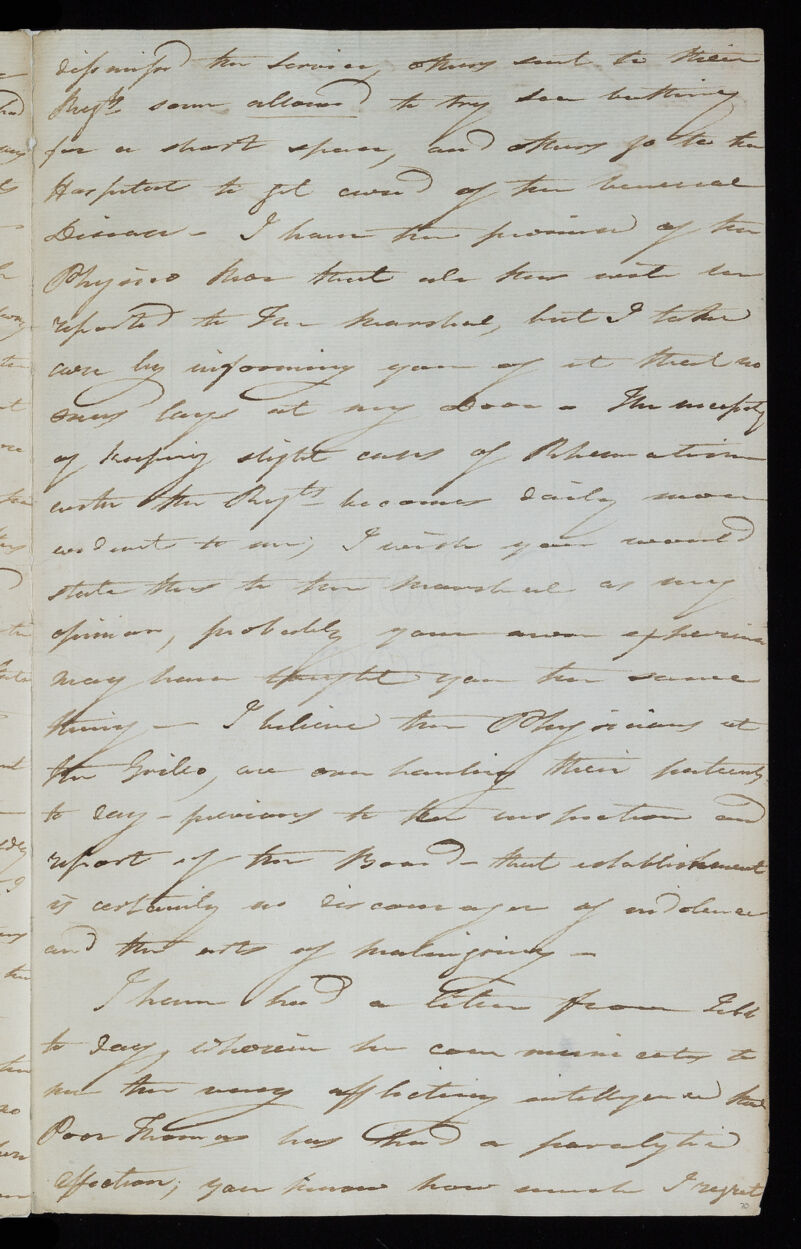 dismiss'd the service, others sent to their
Regts. some allowed to try sea bathing
for a short space, and others go to the
Hospital to get cured of the venereal
Disease - I have the promise of the
Physico Mor that all this will be
reported to The Marshal, but I take
care by informing you of it that no
onus lays at my Door - The necessity
of keeping slight cases of Rheumatism
with the Regts. becomes daily more
evident to me; I wish you would
state this to the Marshal as my
opinion, probably your own experience
may have taught you the same
thing - I believe the Physicians at
the Grilo, are over hauling their patients
to day - previous to the inspection and
report of the Board - that establishment
is certainly no discourager of indolence
and the arts of malingering -
I have had a letter from Jebb
to day, wherein he communicates to
me the very afflicting intelligence that
Poor Thomas has had a paralytic
affection; you know how much I regret